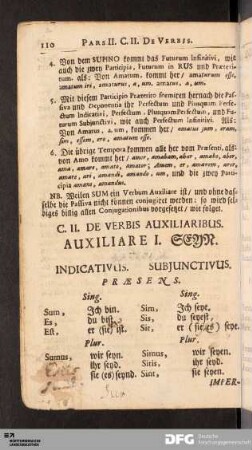 110 PARS II. C. II. DE VERBIS.
4. Von dem SUPINO kommt das Futurum Infinitivi, wie
auch die zwey Participia, Futurum in RUS und Præteri-
tum. als: Von Amatum, kommt her / amaturum esse.
amatum iri, amaturus, a, um. amatus, a, um.
5. Mit diesem Participio Præterito formiren hernach die Pas-
siva und Deponentia ihr Perfectum und Plusquam Perfec-
tum Indicativi, Perfectum, Plusquam Perfectum, und Fu-
turum Subjunctivi, wie auch Perfectum Infinitivi. Als:
Von Amatus, a, um, kommt her / amatus sum, eram,
sim, essem, ero, amatum esse.
6. Die übrige Tempora kommen alle her vom Præsenti, als:
von Amo kommt her / amor, amabam, abar, amabo, abor,
ama, amare, amato, ator, amem, er, amarem, arer,
amare, ari, amandi, amando, um, und die zwey Par-
ticipia amans, amandus.
NB. Weilen SUM ein Verbum Auxiliare ist / und ohne das-
selbe die Passiva nicht können conjugirt werden: so wird sel-
biges billig allen Conjugationibus vorgesetzt / wie folget.
C. II. DE VERBIS AUXILIARIBUS.
AUXILIARE I. SEYN.
INDICATIVUS. SUBJUNCTIVUS.
PRÆSENS.
Sing. Sing.
Sum, Ich bin. Sim, Ich seye.
Es, du bist. Sis, du seyest.
Est, er (sie) ist. Sit, er (sie, es) seye.
Plur. Plur.
Sumus, wir seyn. Simus, wir seyen.
ihr seyd. Sitis, ihr seyd.
sie (es) seynd. Sint, sie seyen.
IMPER-
DFG Deutsche
Forschungsgemeinschaft